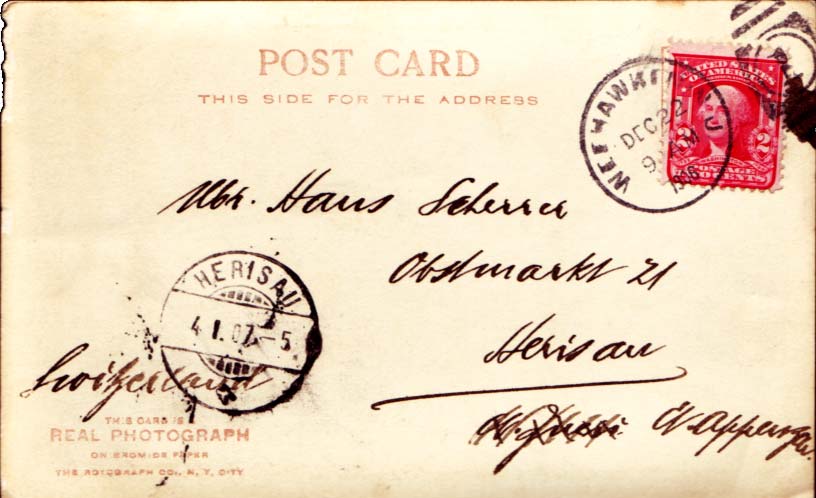 POST CARD
THIS SIDE FOR THE ADDRESS
WEEHAWKEN, N.J.
DEC 22
9 AM
1906
UNITED STATES
OF AMERICA
2 2
POSTAGE
TWO CENTS
Mr. Hans Scherrer
Obstmarkt 21
Herisau
Ct. Appenzell
HERISAU
4.I.07.–5
Switzerland
THIS CARD IS A
REAL PHOTOGRAPH
ON BROMIDE PAPER
THE ROTOGRAPH CO., N. Y. CITY